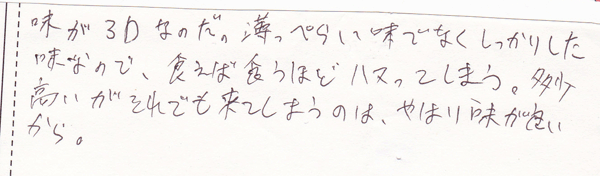 味が3Dなのだ。薄っぺらい味でなくしっかりした
味なので、食えば食うほどハマってしまう。多少
高いがそれでも来てしまうのは、やはり味が良い
から。